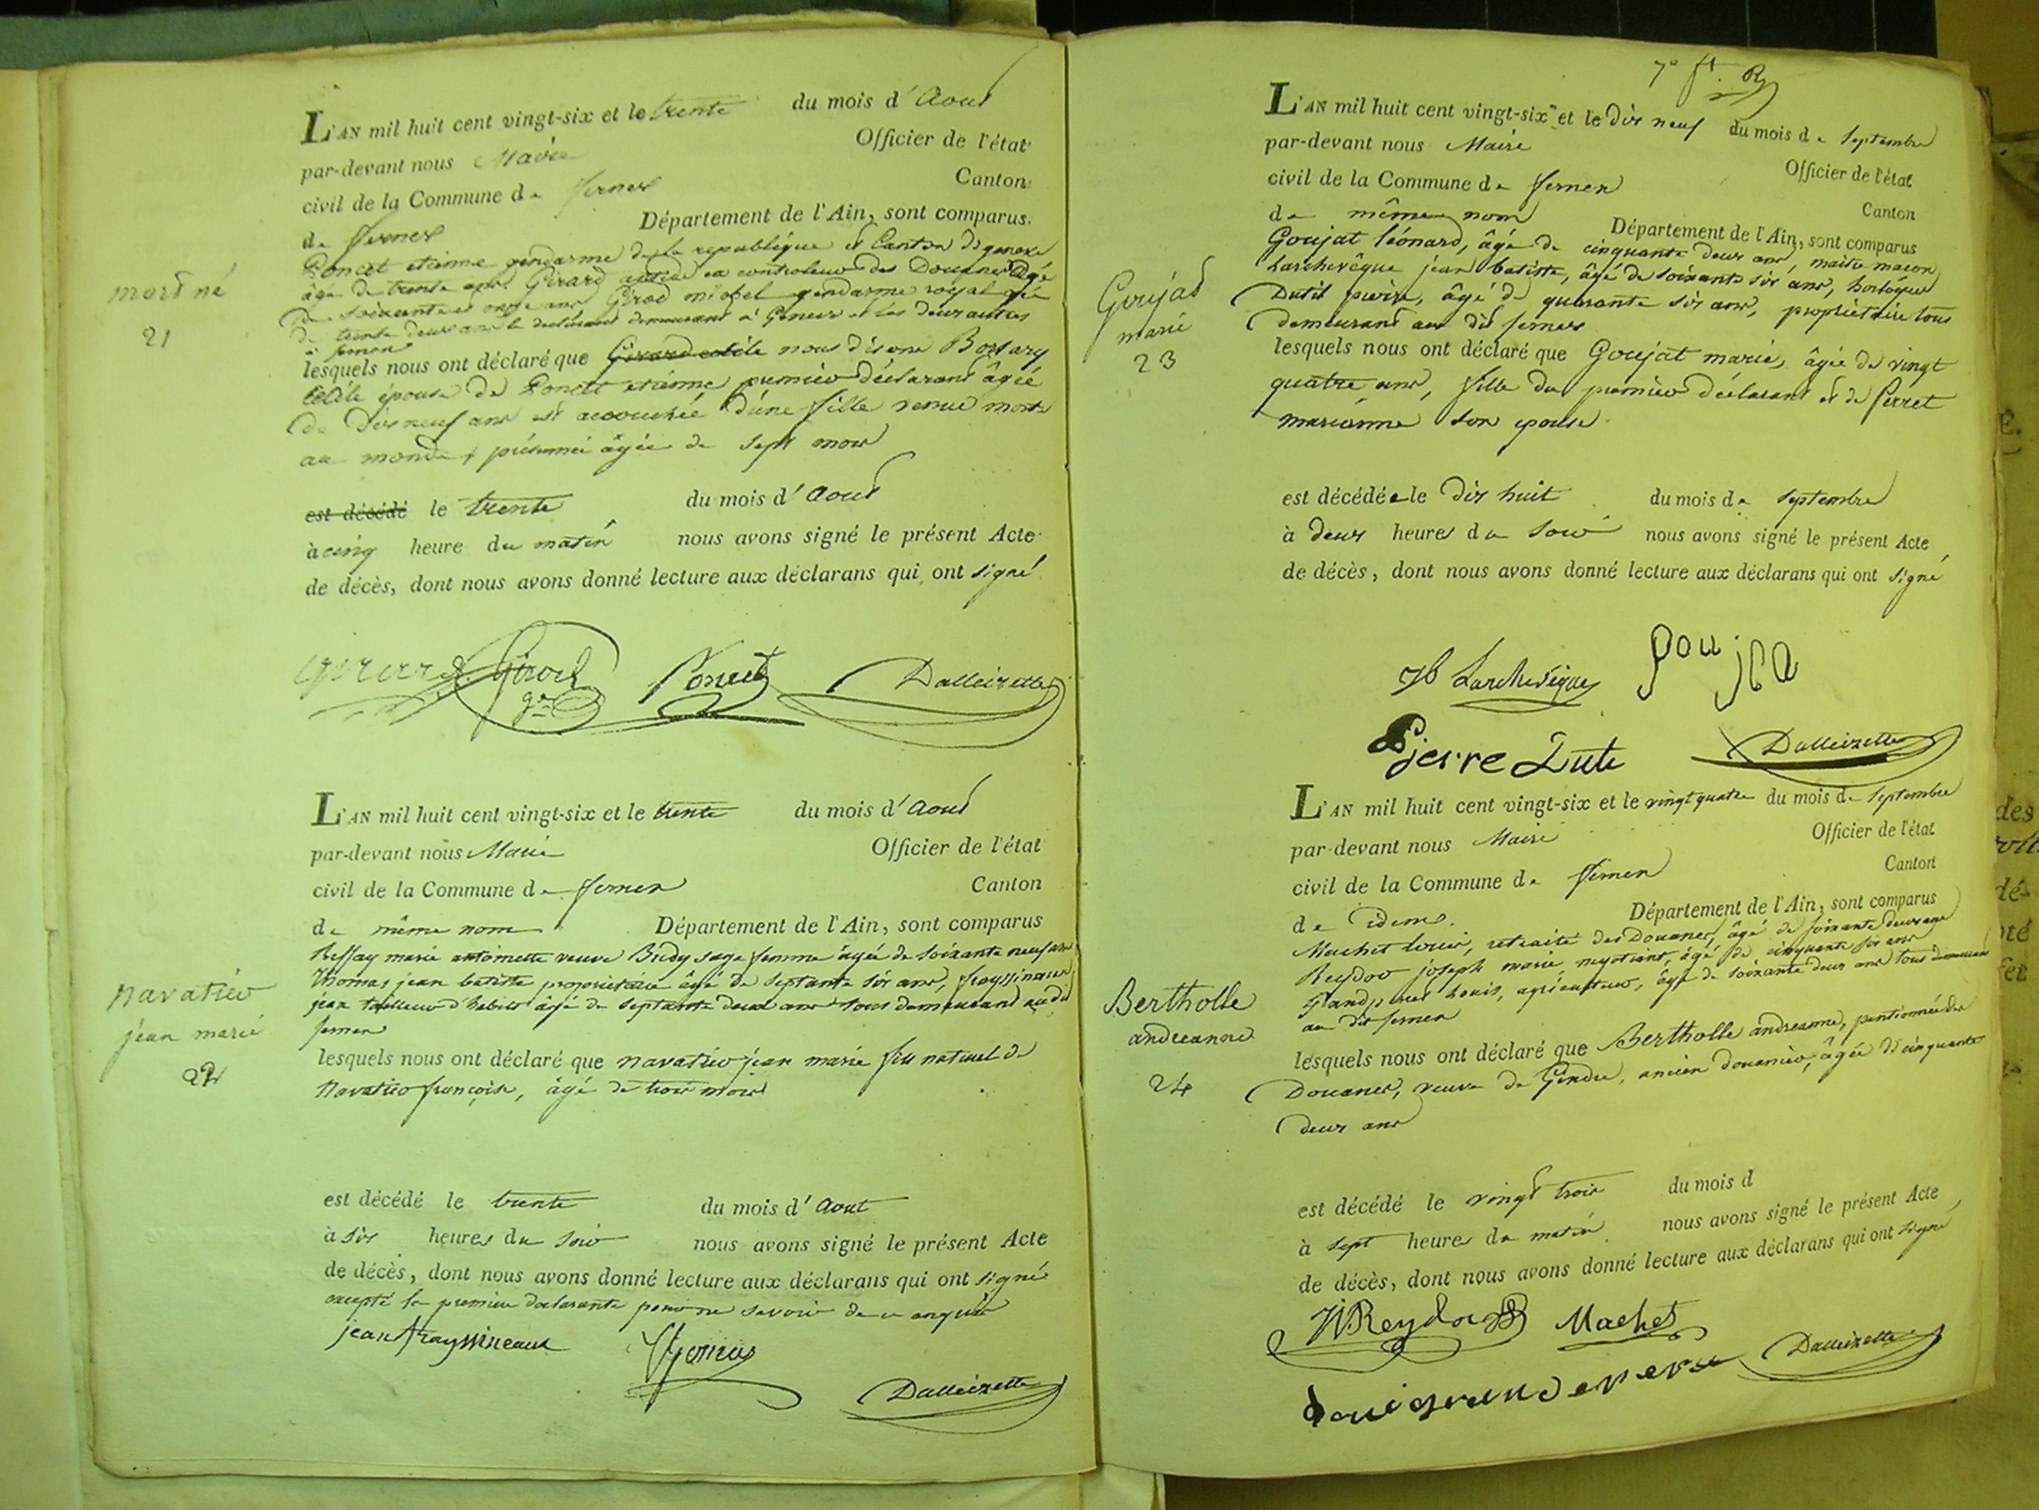 L'AN mil huit cent vingt-six et le trente du mois d'Aout
par-devant nous Maire Officier de l'état
civil de la Commune de fernex Canton
de fernex Département de l'Ain, sont comparus
Poncet etienne gendarme de la republique et Canton de geneve
âgé de trente ans Girard ex controleur des Douanes âgé
de soixante et onze ans Girod michel gendarme royal âgé
de trente deux ans le declarant demeurant a Geneve et les deux autres
a fernex
mort né
21
lesquels nous ont déclaré que Girard cecile nous disons Bossary
Cecile épouse de Poncet etienne premier déclarant âgée
de dix neuf ans est accouchée d'une fille venue morte
au monde présumée âgée de sept mois
est décédé le trente du mois d'Aout
à cinq heure du matin nous avons signé le présent Acte
de décès, dont nous avons donné lecture aux déclarans qui ont signé
girard Girod Poncet Dalleizette
L'AN mil huit cent vingt-six et le trente du mois d'Aout
par-devant nous Maire Officier de l'état
civil de la Commune de fernex Canton
de même nom Département de l'Ain, sont comparus
Reffay marie antoinette veuve Budy sage femme âgée de soixante neuf ans
thomas jean batiste proprietaire âgé de septante six ans, frayssinaux
jean tailleur d'habits âgé de septante deux ans tous demeurant au dit
fernex
navatier
jean marie
22
lesquels nous ont déclaré que navatier jean marie fils naturel de
Navatier françoise, âgé de trois mois
est décédé le trente du mois d'Aout
à six heures du soir nous avons signé le présent Acte
de décès, dont nous avons donné lecture aux déclarans qui ont signé
excepté la premiere declarante pour ne savoir de ce enquise
jean frayssineaux Dalleizette
7e ft.
L'AN mil huit cent vingt-six et le dix neuf du mois de septembre
par-devant nous Maire Officier de l'état
civil de la Commune de fernex Canton
de même nom Département de l'Ain, sont comparus
Goujat léonard, âgé de cinquante deux ans, maitre macon
Larchevêque jean batiste, âgé de soixante six ans, horloger
Dutit pierre, âgé de quarante six ans, propriétaire tous
demeurant au dit fernex
Goujat
marie
23
lesquels nous ont déclaré que Goujat marie, âgée de vingt
quatre ans, fille du premier déclarant et de Perret
marianne son epouse
est décédée le dix huit du mois de septembre
à deux heures du soir nous avons signé le présent Acte
de décès, dont nous avons donné lecture aux déclarans qui ont signé
JB Larchevêque goujea
Pierre Duti Dalleizette
L'AN mil huit cent vingt-six et le vingt quatre du mois de septembre
par-devant nous Maire Officier de l'état
civil de la Commune de fernex Canton
de idem. Département de l'Ain, sont comparus
Machet louis, retraité des Douanes, âgé de soixante deux ans
Reydor joseph marie negotiant, âgé de cinquante six ans
grandperret Louis, agriculteur, âgé de soixante deux ans tous demeurant
au dit fernex
Bertholle
andreanne
24
lesquels nous ont déclaré que Bertholle andreanne, pentionnée des
Douanes, veuve de Gendre, ancien douanier, âgée de cinquante
deux ans
est décédé le vingt trois du mois d
à sept heures du matin nous avons signé le présent Acte
de décès, dont nous avons donné lecture aux déclarans qui ont signé
Reydor Machet
Dalleizette